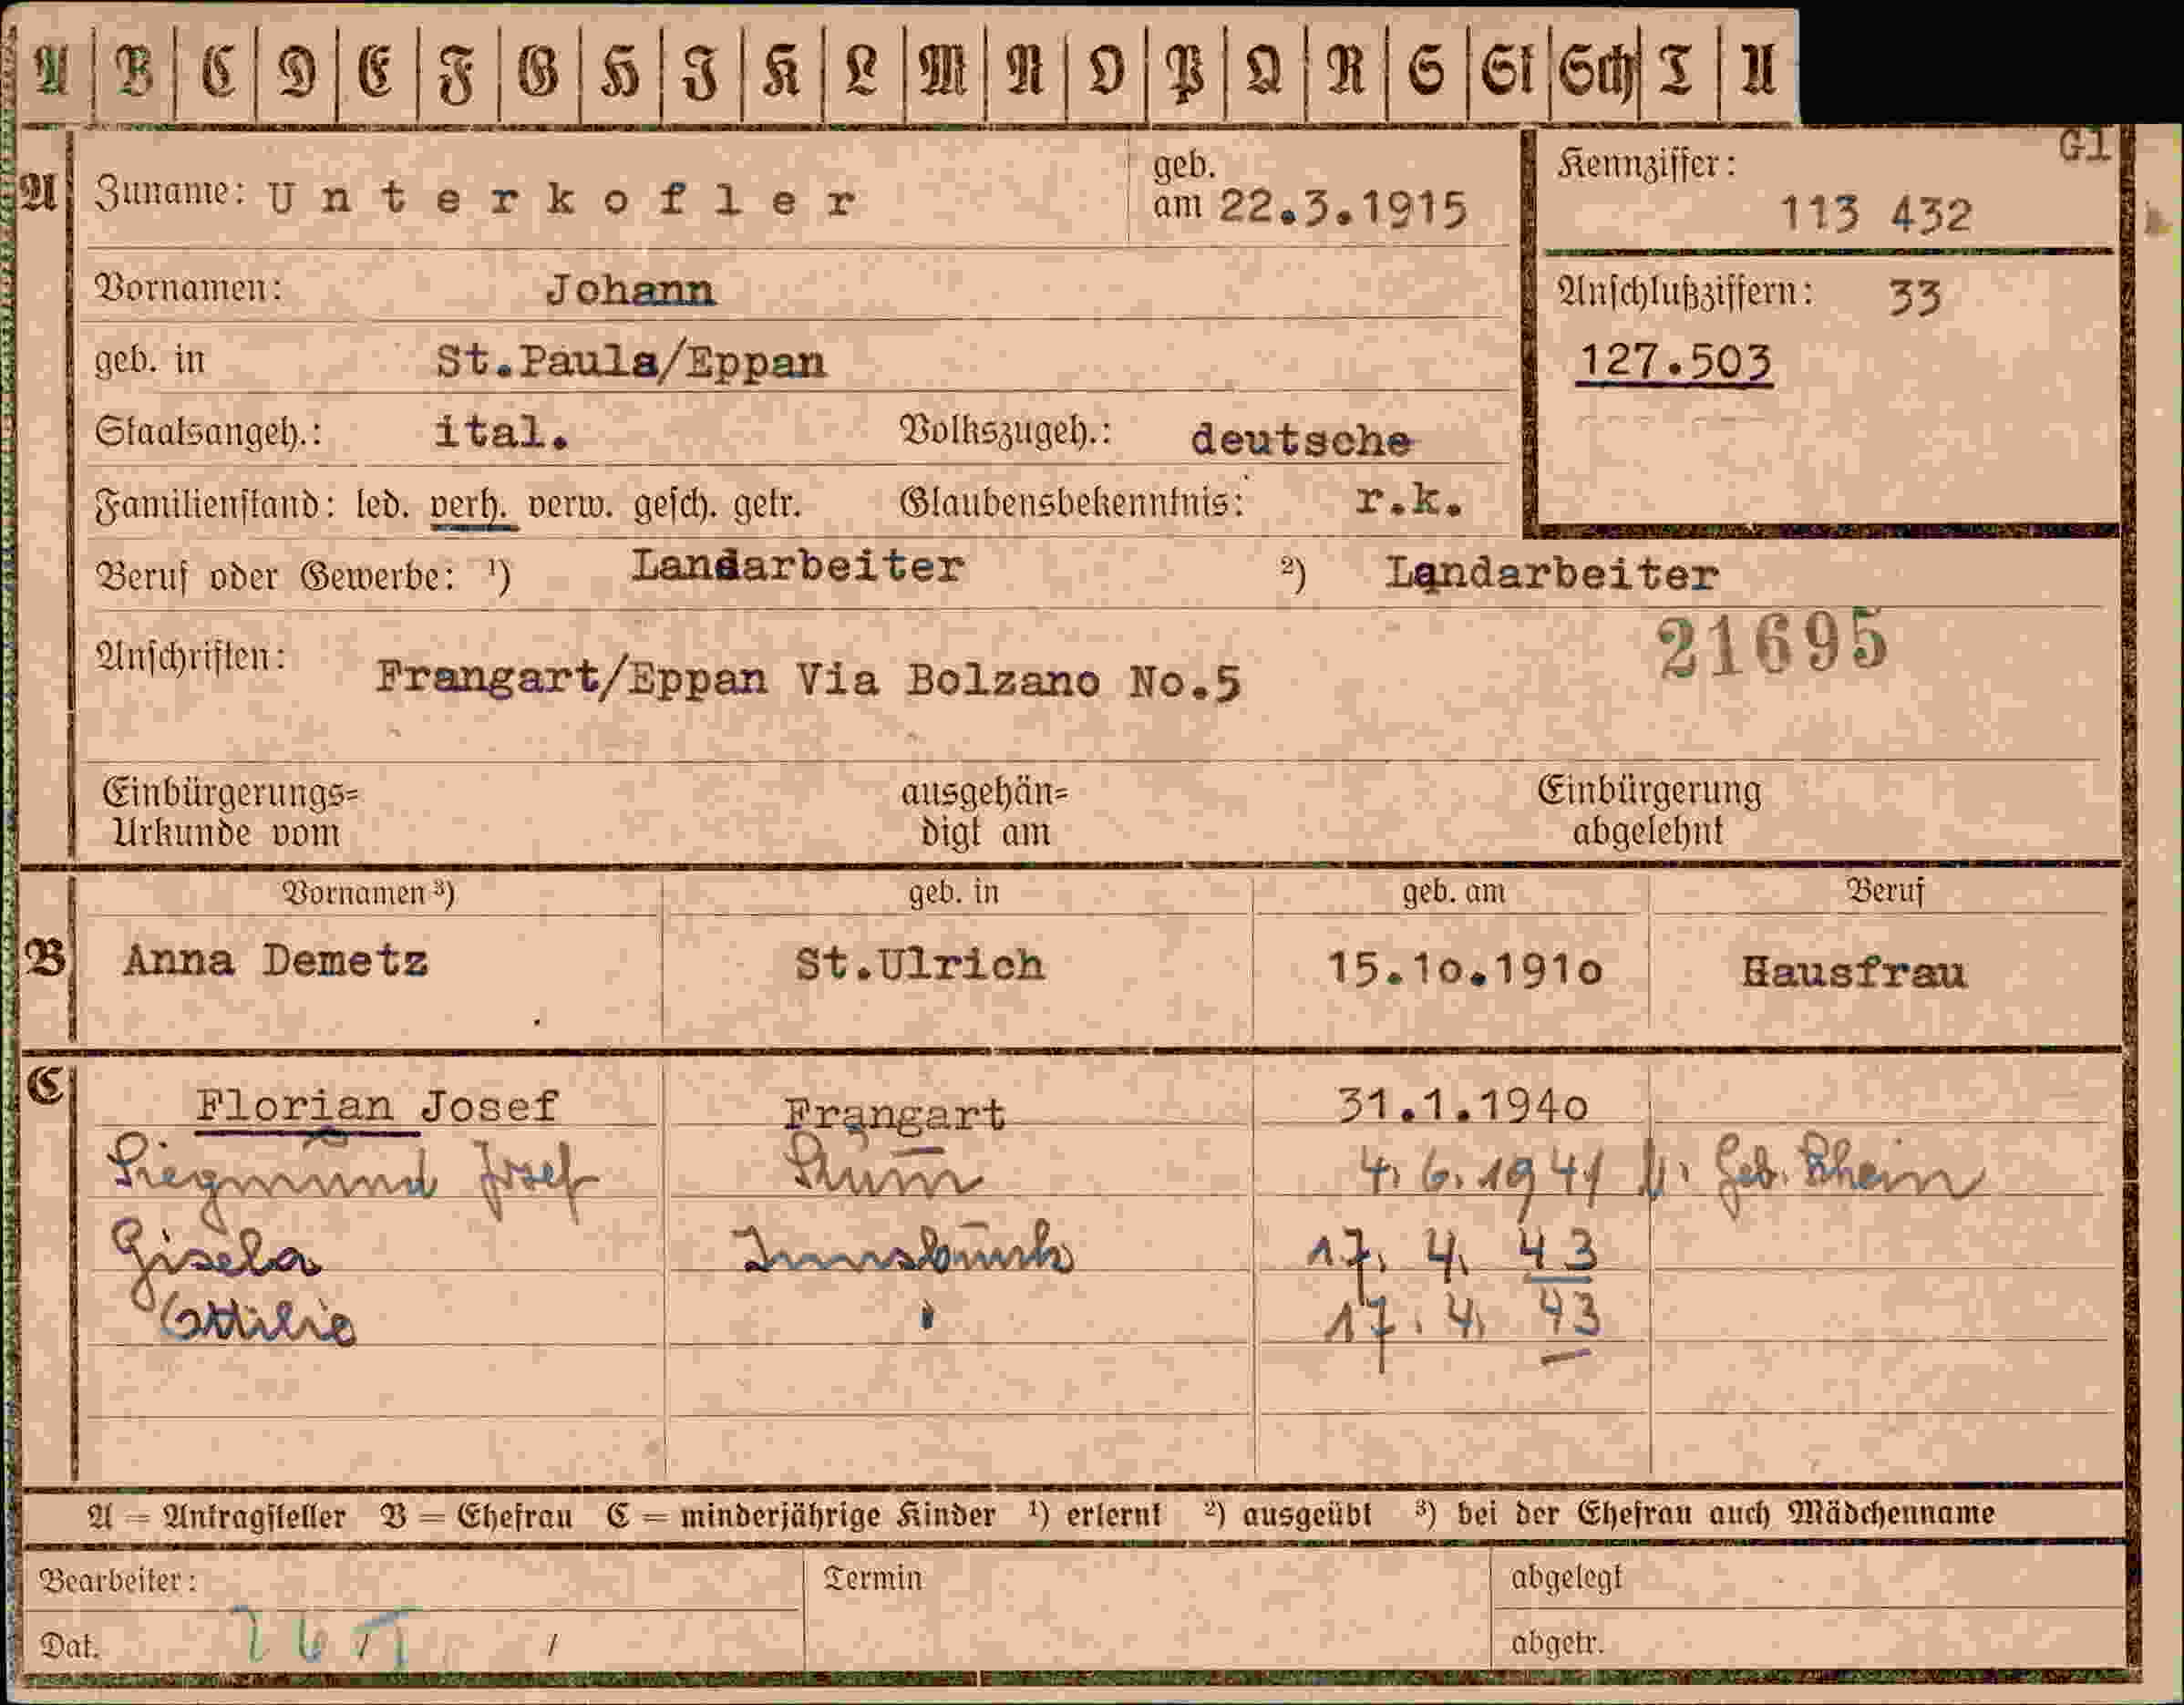 A B C D E F G H I K L M N O P Q R S St Sch T U
G1
A Zuname: Unterkofler geb. am 22.3.1915 Kennziffer: 113 432
Vornamen: Johann Anschlußziffern: 33
geb. in St.Paula/Eppan 127.503
Staatsangeh.: ital. Volkszugeh.: deutsche
Familienstand: led. verh. verw. gesch. getr. Glaubensbekenntnis: r.k.
Beruf oder Gewerbe: ¹) Landarbeiter ²) Landarbeiter
21695
Anschriften: Frangart/Eppan Via Bolzano No.5
Einbürgerungs= ausgehän= Einbürgerung
Urkunde vom digt am abgelehnt
Vornamen ³) geb. in geb. am Beruf
B Anna Demetz St.Ulrich 15.10.1910 Hausfrau
C Florian Josef Frangart 31.1.1940
Siegmund Josef 4. 6. 1941 Geb. Schein
Gisela Innsbruck 17. 4. 43
Ottilie " 17. 4. 43
A = Antragsteller B = Ehefrau C = minderjährige Kinder ¹) erlernt ²) ausgeübt ³) bei der Ehefrau auch Mädchenname
Bearbeiter: Termin abgelegt
Dat. / / abgetr.